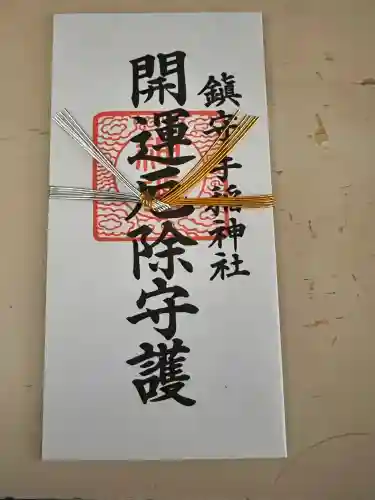 鎮守 手稲神社
開運厄除守護